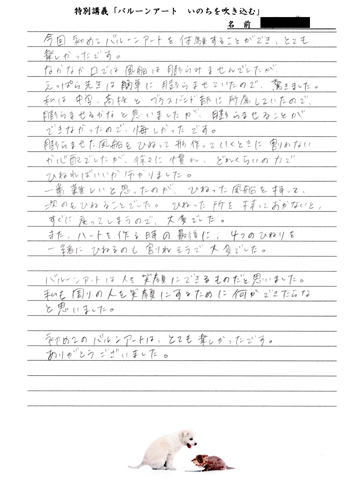 特別講義「バルーンアート　いのちを吹き込む」
名前
今回初めてバルーンアートを体験することができ、とても
楽しかったです。
なかなか口では風船は膨らみませんでしたが、
先生は簡単に膨らませていたので、驚きました。
私は中学、高校とブラスバンド部に所属していたので、
膨らませるかなと思いましたが、膨らませることが
できなかったので、悔しかったです。
膨らませた風船をひねって形作っていくときに割れない
か心配でしたが、徐々に慣れ、どれくらいの力で
ひねればいいか分かりました。
一番難しいと思ったのが、ひねった風船を持って、
次のもひねることでした。ひねった所を持っておかないと、
すぐに戻ってしまうので、大変でした。
また、ハートを作る時の最後に、4つのひねりを
一緒にひねるのも割れそうで大変でした。
バルーンアートは人を笑顔にできるものだと思いました。
私も周りの人を笑顔にするために何かできたらな
と思いました。
初めてのバルーンアートは、とても楽しかったです。
ありがとうございました。